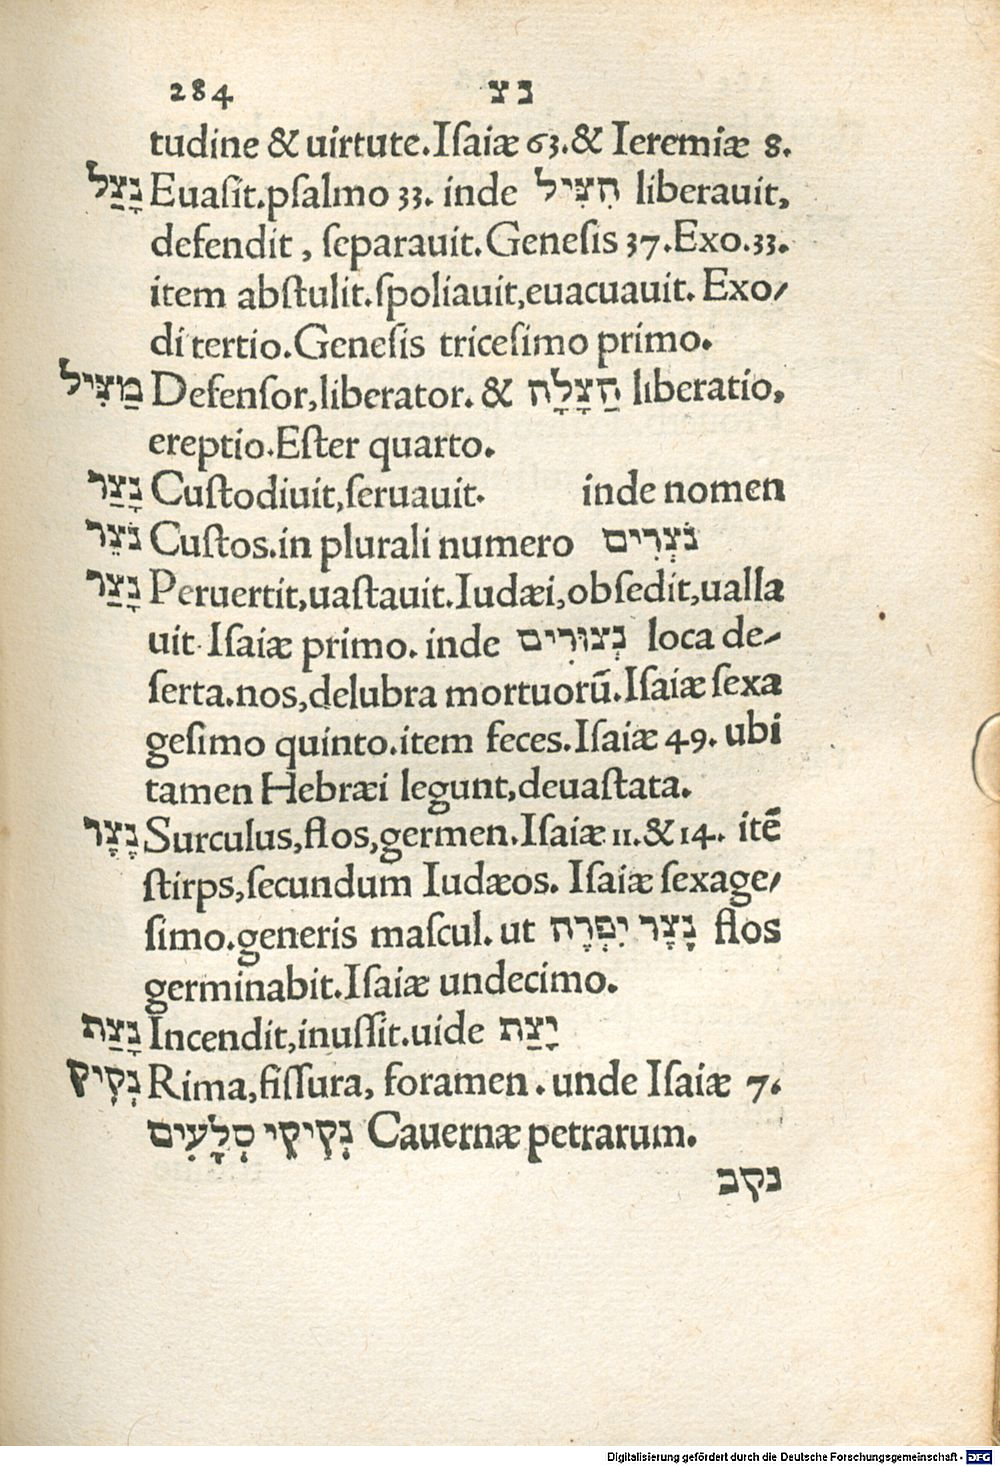 284 נצ
tudine & uirtute. Iſaiæ 63. & Ieremiæ 8.
נָצַל Euaſit. pſalmo 33. inde הִצִּיל liberauit,
defendit, ſeparauit. Geneſis 37. Exo. 33.
item abſtulit. ſpoliauit, euacuauit. Exo/
di tertio. Geneſis triceſimo primo.
מַצִּיל Defenſor, liberator. & הַצָּלָה liberatio,
ereptio. Eſter quarto.
נָצַר Cuſtodiuit, ſeruauit. inde nomen
נֹצֵר Cuſtos. in plurali numero נֹצְרִים
נָצַר Peruertit, uaſtauit. Iudæi, obſedit, ualla
uit. Iſaiæ primo. inde נְצוּרִים loca de/
ſerta. nos, delubra mortuorū. Iſaiæ ſexa
geſimo quinto. item feces. Iſaiæ 49. ubi
tamen Hebræi legunt, deuaſtata.
נֶצֶר Surculus, flos, germen. Iſaiæ 11. & 14. itē
ſtirps, ſecundum Iudæos. Iſaiæ ſexage/
ſimo. generis maſcul. ut נֶצֶר יִפְרֶה flos
germinabit. Iſaiæ undecimo.
נָצַת Incendit, inuſſit. uide יָצַת
נְקִיק Rima, fiſſura, foramen. unde Iſaiæ 7.
נְקִיקֵי סְלָעִים Cauernæ petrarum.
נקב
Digitalisierung gefördert durch die Deutsche Forschungsgemeinschaft - DFG